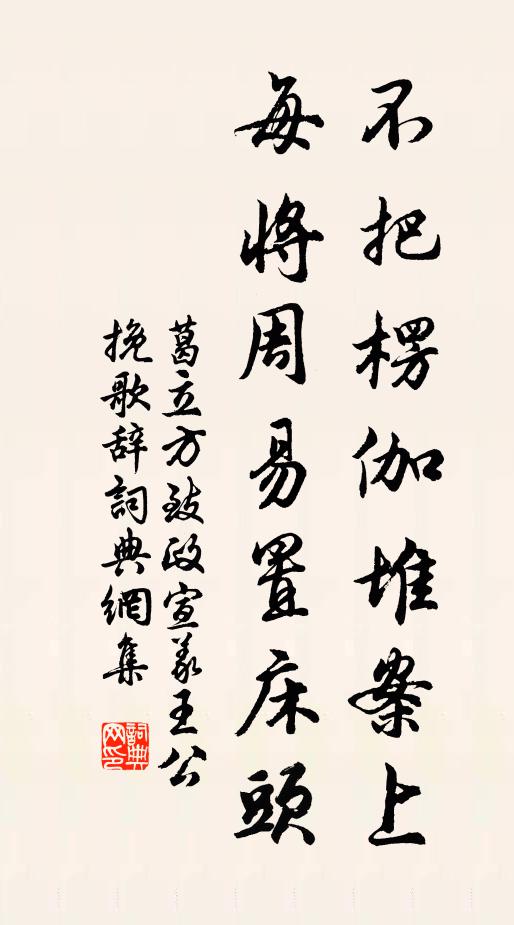 不把楞伽堆案上
每將周易置床頭
葛立方致政宣義王公
挽歌辞詞典網集
詞典网印